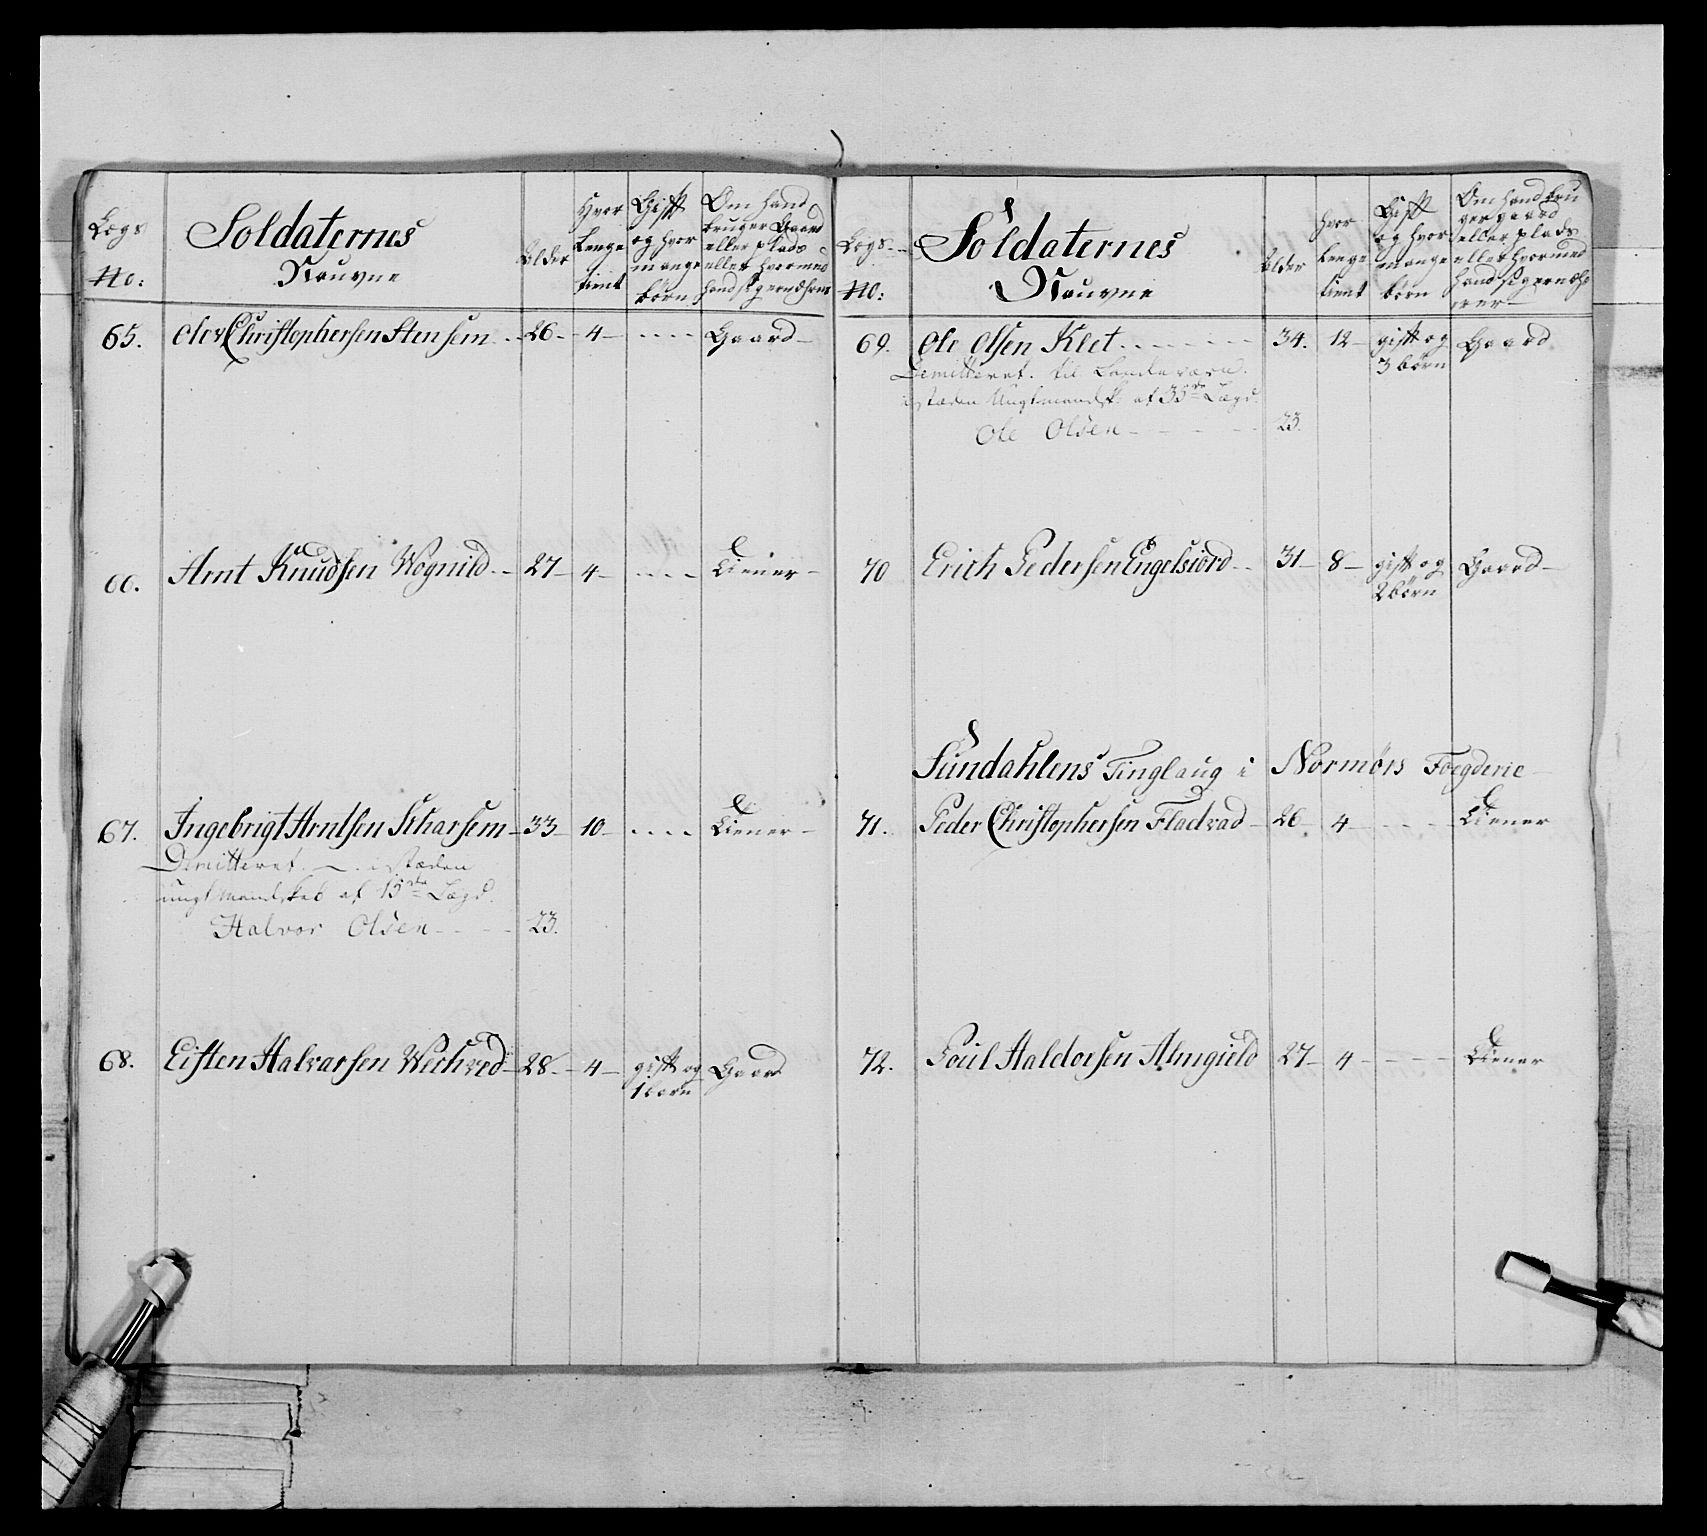 Lægs No:
Soldaternes Nauvne
Alder
Hvor Lenge tient
Gift og hvor mange börn
Om hand bruger Gaard eller plads eller hvormed hand sig ernærer
65. Ole Christophersen Stensem 26 4 Gaard
66. Arnt Knudsen Wognild 27 4 Tiener
67. Ingebrigt Arntsen Scharsem 33 10 Tiener
Dimitteret i stæden
ungt Mandskab af 15de Lægd.
Halvor Olsen 23.
68. Eisten Halvarsen Wechved 28 4 gift og Gaard
1 barn
Lægs No:
Soldaternes Nauvne
Alder
hvor Lenge tient
Gift og hvor mange börn
Om hand bruger gaard eller plads eller hvormed hand sig ernærer
69. Ole Olsen Klet 34. 12 gift og Gaard
3 börn
Demitteret til Landeværn.
istæden Ungt mandsk: af 35de Lægd.
Ole Olsen 23.
70 Erich Pedersen Engelsiord 31 8 gift og Gaard
2 börn
Sundahlens Tinglaug i Normørs Foegderie
71. Peder Christophersen Fladvad 26 4 Tiener
72. Poul Haldorsen Almguld 27 4 Tiener